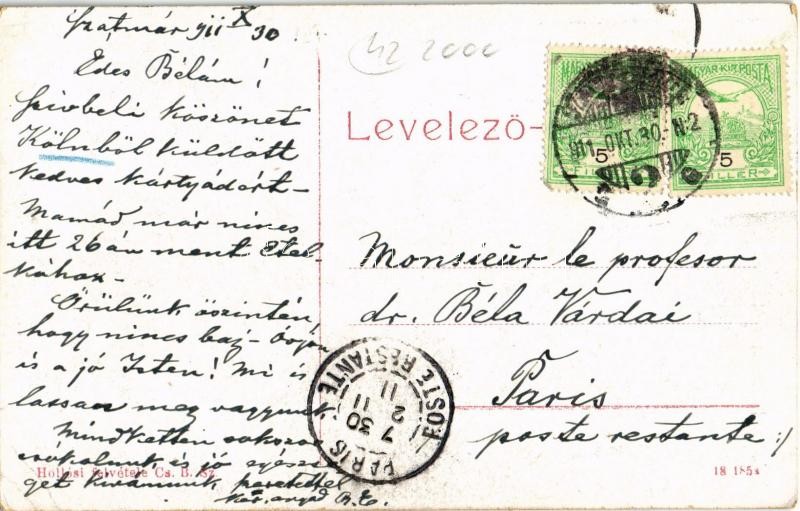 Szatmár 911 X 30
Edes Bélám!
Szivbeli köszönet
Kölnböl küldött
kedves kártyádért-
Mamád már nincs
itt 26án ment Etel-
kához-
Örülünk öszintén,
hogy nincs baj- óvjon
is a jó Isten! Mi is
lassan meg vagyunk.
Mindketten sokszor
csókolunk és jó egész-
get kivánunk szeretettel
Ker. anyád B.E.
42 2000
Levelezö-
MAGYAR·KIR·POSTA
5
FILLÉR
5
FILLER
911 OKT. 30. N.2
Monsieur le profesor
dr. Béla Várdai
Paris
poste restante :/
PARIS
7 30
2 11
11
POSTE RESTANTE
Hollósi felvétele Cs. B. Sz
18 1854